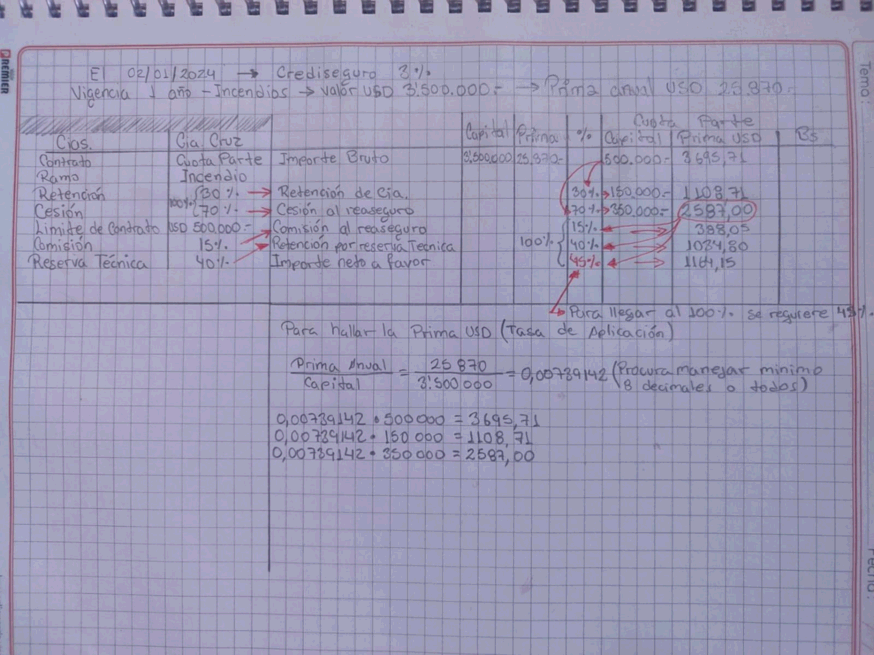 El 02/01/2024 → Crediseguro 3%
Vigencia 1 año - Incendios → valor USD 3'500.000.- → Prima anual USD 25.870.-
Cuota Parte
Cios. Cia Cruz Capital Prima % Capital Prima USD Bs
Contrato Cuota Parte Importe Bruto 3'500.000 25.870.- 500.000.- 3695,71
Ramo Incendio
Retención 30% → Retención de Cia. 30% → 150,000.- 1108,71
100%
Cesión 70% → Cesión al reaseguro 70% → 350,000.- 2587,00
Limite de Contrato USD 500.000.- Comisión al reaseguro 15% 388,05
Comisión 15% Retención por reserva Tecnica 100% 40% 1034,80
Reserva Técnica 40% Importe neto a favor 45% 1164,15
Para llegar al 100% se requiere 45%
Para hallar la Prima USD (Tasa de Aplicación)
Prima Anual / Capital = 25 870 / 3'500 000 = 0,00739142 (Procura manejar minimo
8 decimales o todos)
0,00739142 • 500 000 = 3695,71
0,00739142 • 150 000 = 1108,71
0,00739142 • 350 000 = 2587,00
Tema:
Fecha: